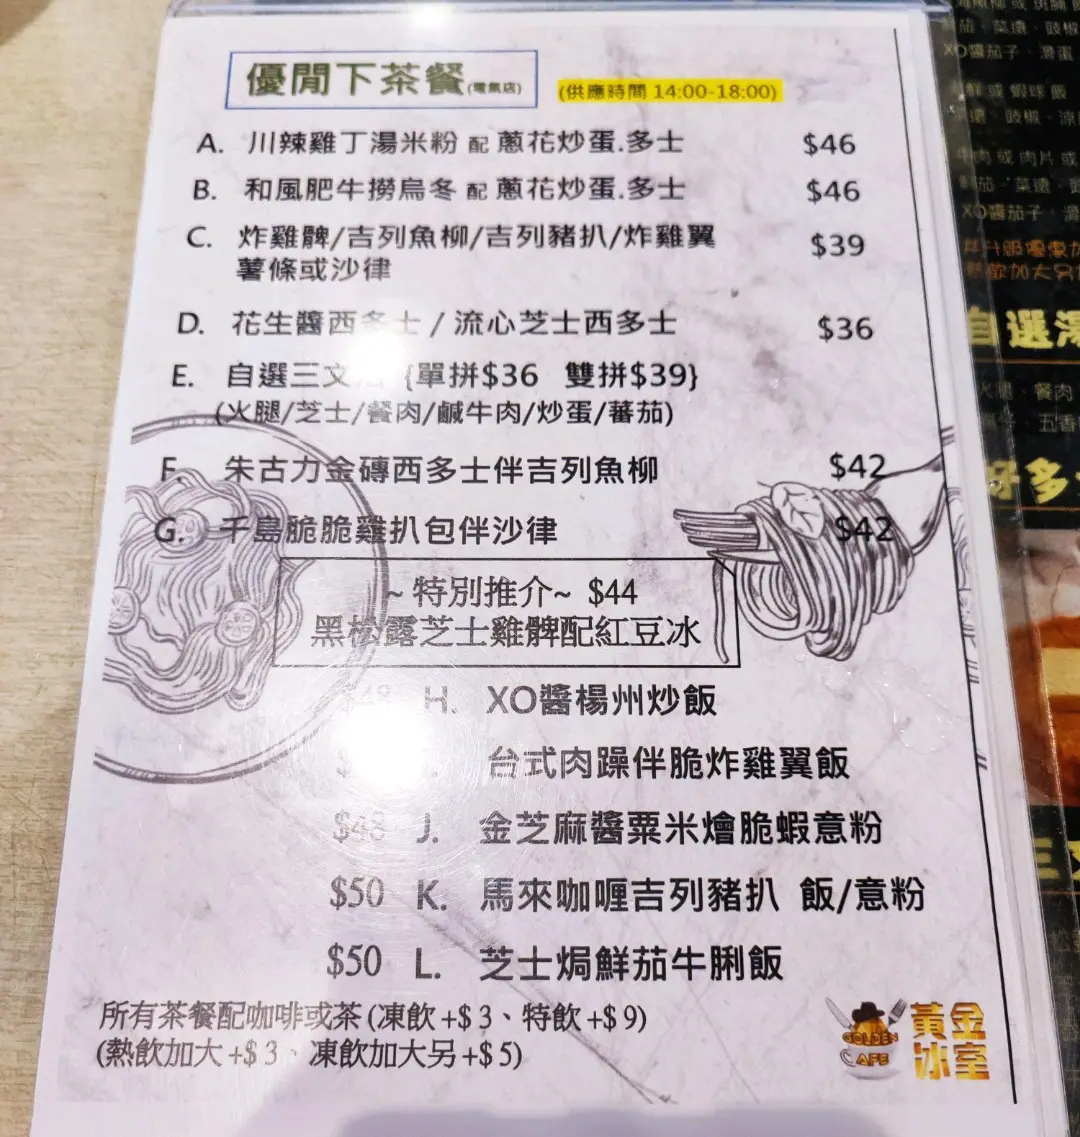 優閒下茶餐(電氣店) (供應時間 14:00-18:00)
A. 川辣雞丁湯米粉 配 蔥花炒蛋.多士 $46
B. 和風肥牛撈烏冬 配 蔥花炒蛋.多士 $46
C. 炸雞髀/吉列魚柳/吉列豬扒/炸雞翼 $39
薯條或沙律
D. 花生醬西多士 / 流心芝士西多士 $36
E. 自選三文治 {單拼$36 雙拼$39}
(火腿/芝士/餐肉/鹹牛肉/炒蛋/蕃茄)
F. 朱古力金磚西多士伴吉列魚柳 $42
G. 千島脆脆雞扒包伴沙律 $42
~ 特別推介~ $44
黑松露芝士雞髀配紅豆冰
$48 H. XO醬楊州炒飯
台式肉躁伴脆炸雞翼飯
$48 J. 金芝麻醬粟米燴脆蝦意粉
$50 K. 馬來咖喱吉列豬扒 飯/意粉
$50 L. 芝士焗鮮茄牛脷飯
所有茶餐配咖啡或茶 (凍飲 +$ 3、特飲 +$ 9)
(熱飲加大 +$ 3、凍飲加大另 +$ 5)
GOLDEN CAFE
黃金
冰室
XO醬茄子、滑蛋
XO醬茄子、滑
自選湯
火腿、餐肉
五香
好多